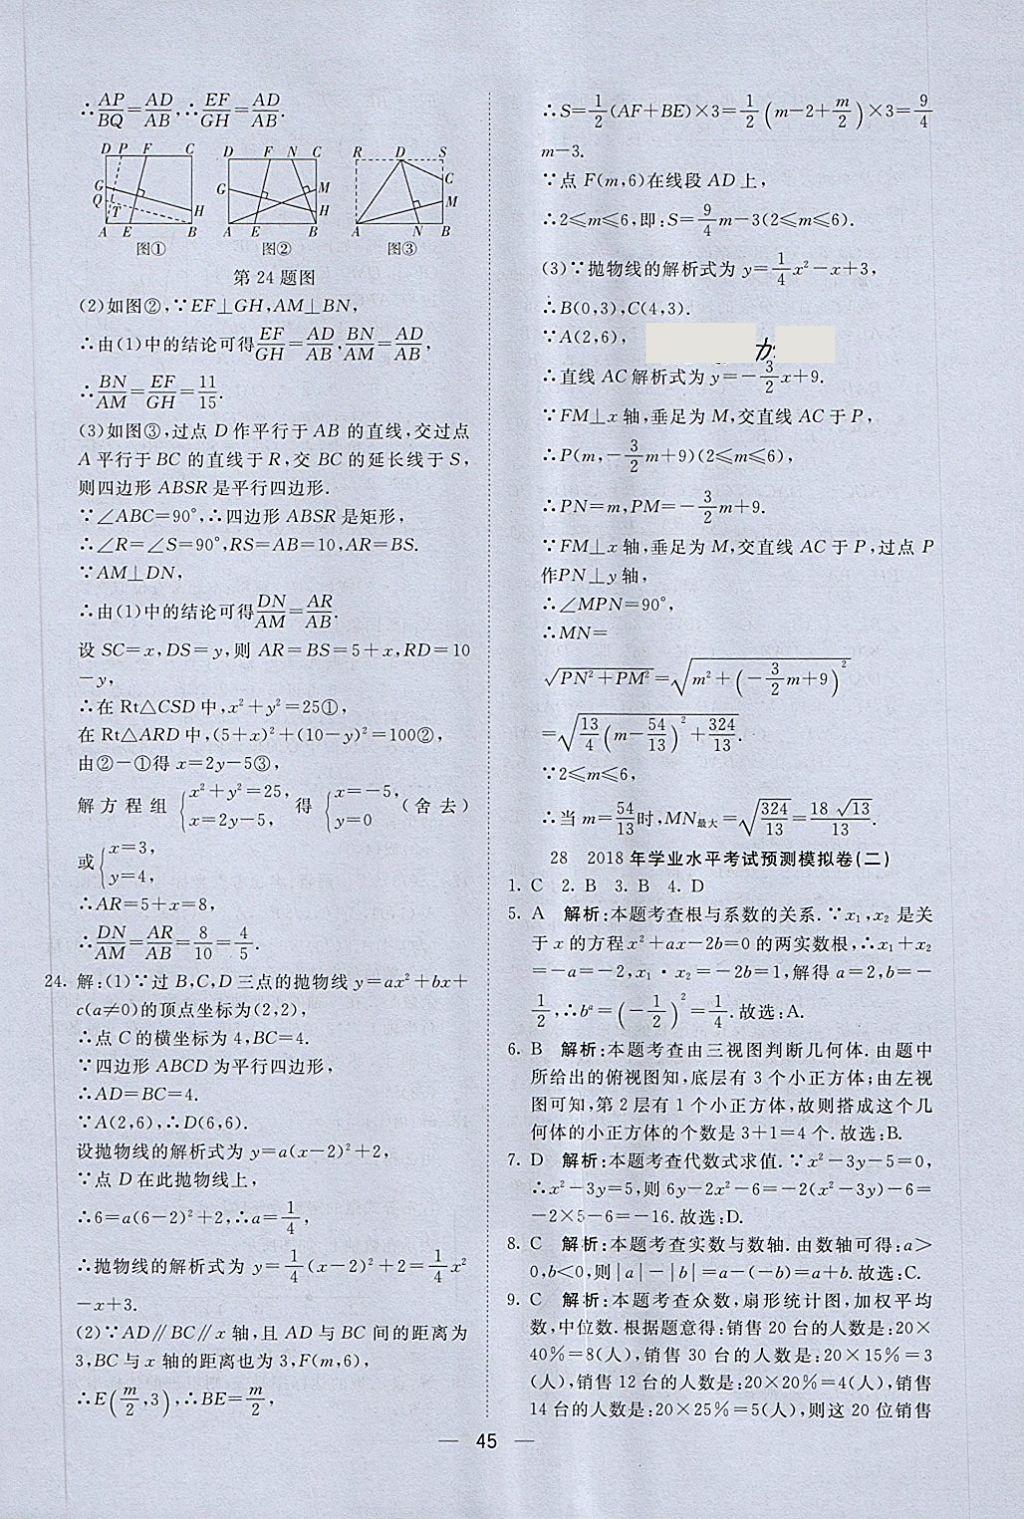 ∴AP/BQ=AD/AB,∴EF/GH=AD/AB.
D P F C
G
Q
T
H
A E B
图①
D F N C
G
M
H
A E B
图②
R D S
C
M
A N B
图③
第24题图
(2)如图②,∵EF⊥GH,AM⊥BN,
∴由(1)中的结论可得EF/GH=AD/AB,BN/AM=AD/AB,
∴BN/AM=EF/GH=11/15.
(3)如图③,过点 D 作平行于 AB 的直线,交过点
A 平行于 BC 的直线于 R,交 BC 的延长线于 S,
则四边形 ABSR 是平行四边形.
∵∠ABC=90°,∴四边形 ABSR 是矩形,
∴∠R=∠S=90°,RS=AB=10,AR=BS.
∵AM⊥DN,
∴由(1)中的结论可得DN/AM=AR/AB.
设 SC=x,DS=y,则 AR=BS=5+x,RD=10
-y,
∴在 Rt△CSD 中,x²+y²=25①,
在 Rt△ARD 中,(5+x)²+(10-y)²=100②,
由②-①得 x=2y-5③,
解方程组{x²+y²=25, x=2y-5, 得{x=-5, y=0(舍去)
或{x=3, y=4,
∴AR=5+x=8,
∴DN/AM=AR/AB=8/10=4/5.
24. 解:(1)∵过 B,C,D 三点的抛物线 y=ax²+bx+
c(a≠0)的顶点坐标为(2,2),
∴点 C 的横坐标为 4,BC=4.
∵四边形 ABCD 为平行四边形,
∴AD=BC=4.
∵A(2,6),∴D(6,6).
设抛物线的解析式为 y=a(x-2)²+2,
∵点 D 在此抛物线上,
∴6=a(6-2)²+2,∴a=1/4,
∴抛物线的解析式为 y=1/4(x-2)²+2=1/4x²
-x+3.
(2)∵AD∥BC∥x 轴,且 AD 与 BC 间的距离为
3,BC 与 x 轴的距离也为 3,F(m,6),
∴E(m/2,3),∴BE=m/2,
∴S=1/2(AF+BE)×3=1/2(m-2+m/2)×3=9/4
m-3.
∵点 F(m,6)在线段 AD 上,
∴2≤m≤6,即:S=9/4m-3(2≤m≤6).
(3)∵抛物线的解析式为 y=1/4x²-x+3,
∴B(0,3),C(4,3).
∵A(2,6),
∴直线 AC 解析式为 y=-3/2x+9.
∵FM⊥x 轴,垂足为 M,交直线 AC 于 P,
∴P(m,-3/2m+9)(2≤m≤6),
∴PN=m,PM=-3/2m+9.
∵FM⊥x 轴,垂足为 M,交直线 AC 于 P,过点 P
作PN⊥y 轴,
∴∠MPN=90°,
∴MN=
√(PN²+PM²)=√(m²+(-3/2m+9)²)
=√(13/4(m-54/13)²+324/13).
∵2≤m≤6,
∴当 m=54/13时,MN最大=√(324/13)=18√13/13.
28 2018年学业水平考试预测模拟卷(二)
1. C 2. B 3. B 4. D
5. A 解析:本题考查根与系数的关系.∵x₁,x₂ 是关
于 x 的方程 x²+ax-2b=0 的两实数根,∴x₁+x₂
=-a=-2,x₁·x₂=-2b=1,解得 a=2,b=-
1/2,∴bᵃ=(-1/2)²=1/4.故选:A.
6. B 解析:本题考查由三视图判断几何体.由题中
所给出的俯视图知,底层有 3 个小正方体;由左视
图可知,第 2 层有 1 个小正方体,故则搭成这个几
何体的小正方体的个数是 3+1=4 个.故选:B.
7. D 解析:本题考查代数式求值.∵x²-3y-5=0,
∴x²-3y=5,则 6y-2x²-6=-2(x²-3y)-6=
-2×5-6=-16.故选:D.
8. C 解析:本题考查实数与数轴.由数轴可得:a>
0,b<0,则|a|-|b|=a-(-b)=a+b.故选:C.
9. C 解析:本题考查众数,扇形统计图,加权平均
数,中位数.根据题意得:销售 20 台的人数是:20×
40%=8(人),销售 30 台的人数是:20×15%=3
(人),销售 12 台的人数是:20×20%=4(人),销售
14 台的人数是:20×25%=5(人),则这 20 位销售
— 45 —